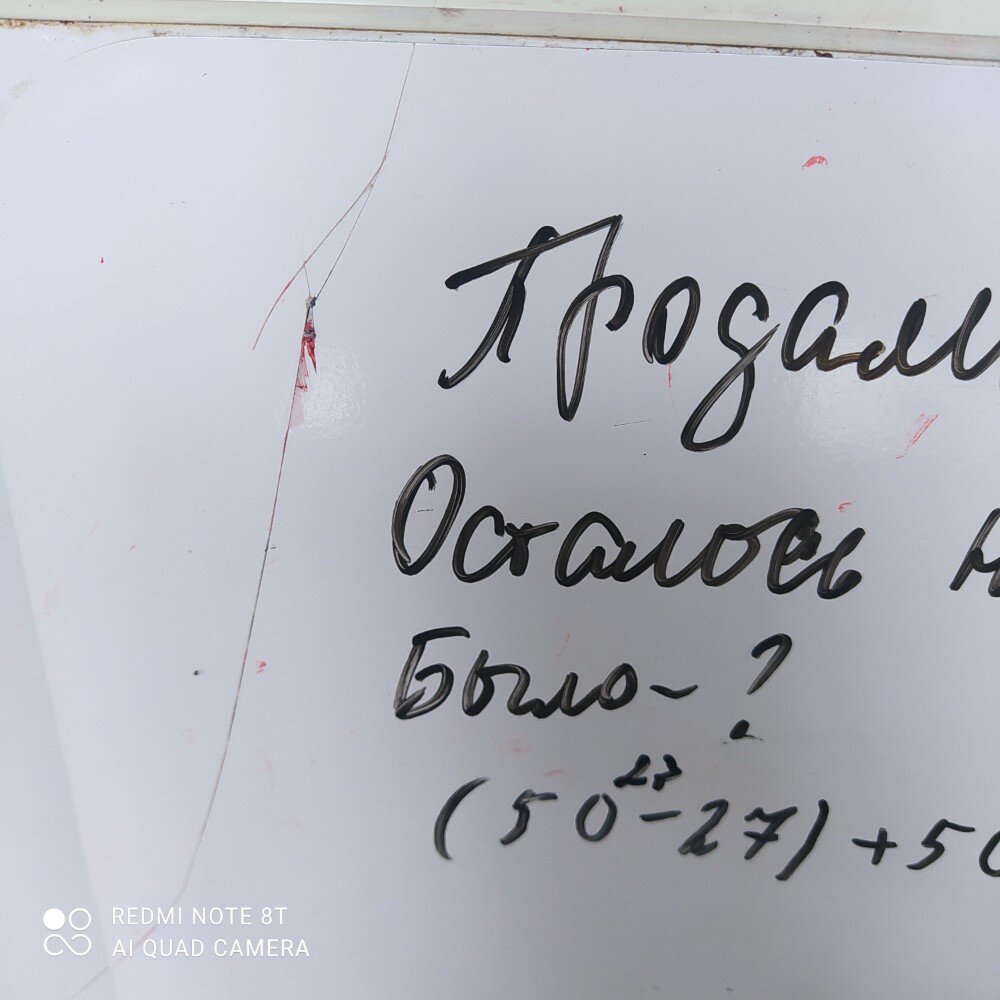 Продали
Осталось н
Было - ?
23
(50 - 27) + 50
REDMI NOTE 8T
AI QUAD CAMERA